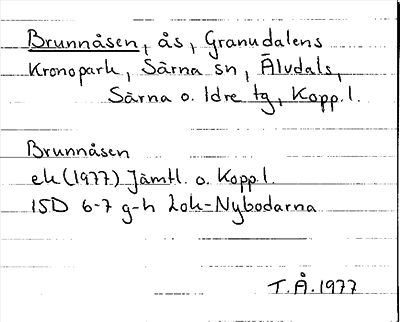 Brunnåsen, ås, Granudalens
Kronopark, Särna sn, Älvdals,
Särna o. Idre tg, Kopp. l.
Brunnåsen
ek (1977) Jämtl. o. Kopp. l.
15D 6-7 g-h Lok-Nybodarna
T.Å. 1977